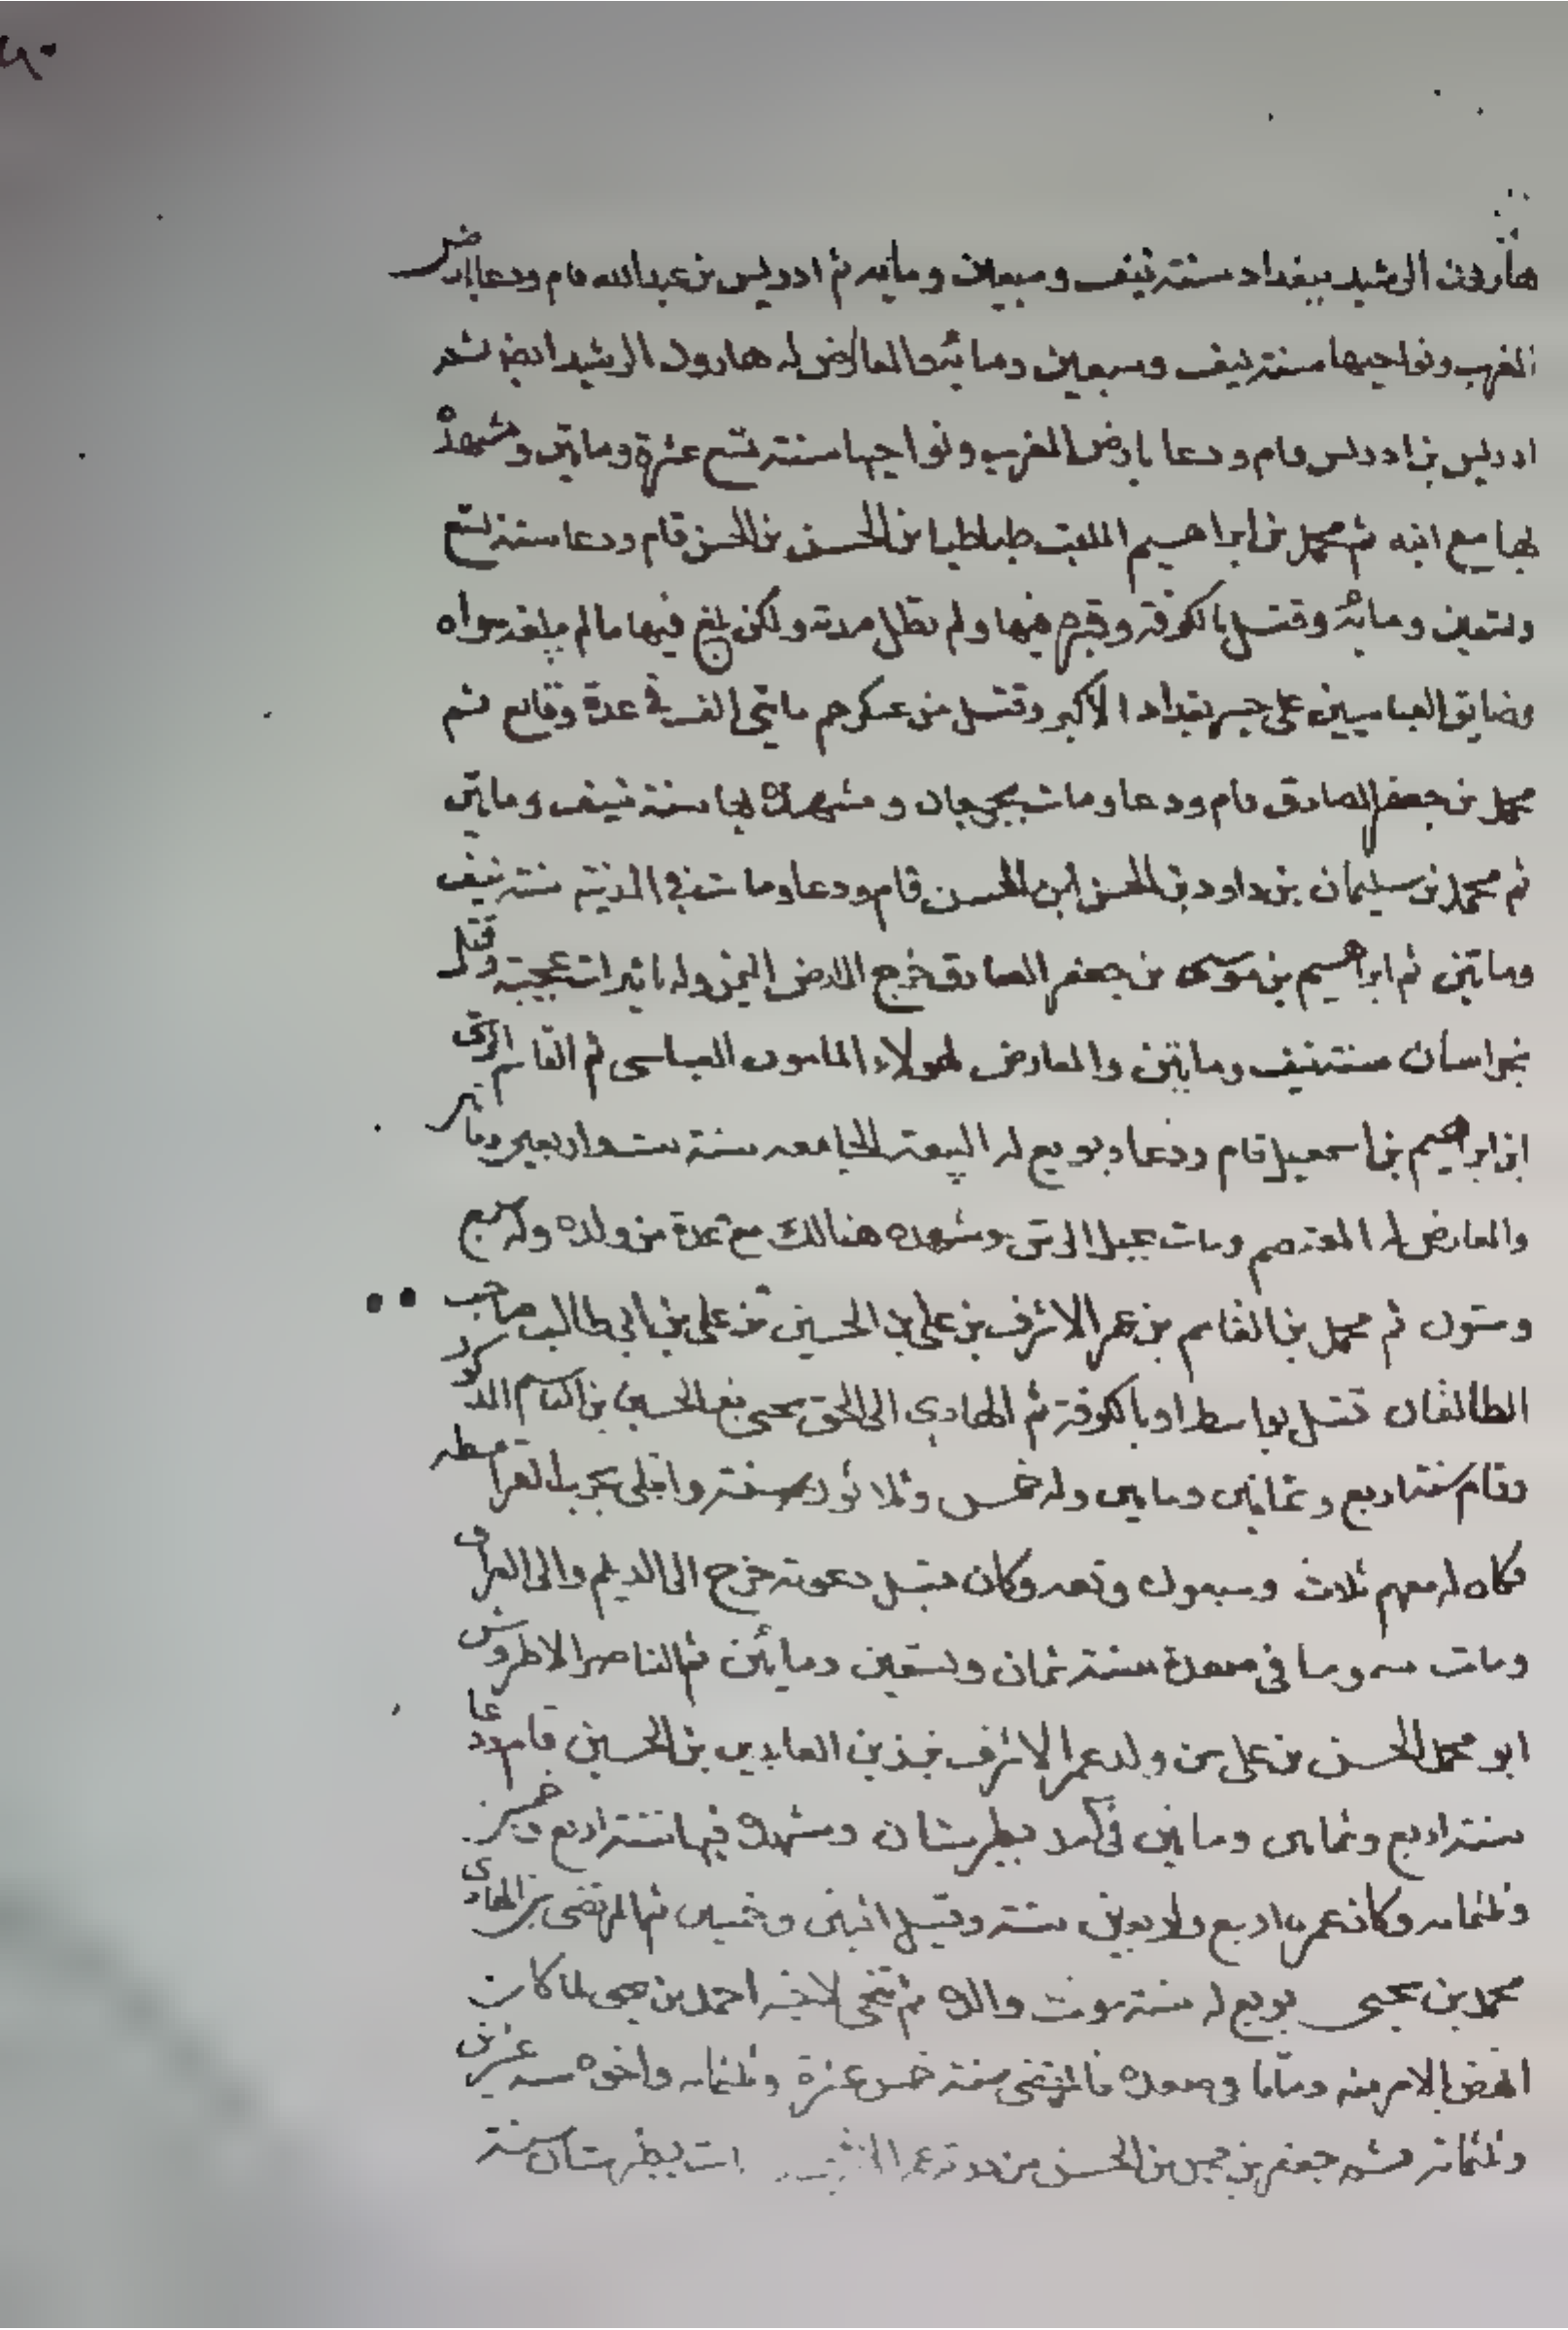 هارون الرشيد ببغداد سنة نيف وسبعين ومايه ثم ادريس بن عبدالله قام ودعا بارض
المغرب ونواحيها سنة نيف وسبعين ومائة والمعارض له هارون الرشيد ايضا ثم
ادريس بن ادريس قام ودعا بارض المغرب ونواحيها سنة تسع عشرة ومايتين ومشهده
بها مع ابيه ثم محمد بن ابراهيم الملقب طباطبا بن الحسن بن الحسن قام ودعا سنة تسع
وتسعين ومائة وقتل بالكوفة وقبره فيها ولم تطل مدته ولكن بلغ فيها مالم يبلغه سواه
وضايق العباسيين على جسر بغداد الاكبر وقتل من عسكرهم مايتي الف في عدة وقايع ثم
محمد بن جعفر الصادق قام ودعا ومات بجرجان ومشهده بها سنة نيف ومايتين
ثم محمد بن سليمان بن داود بن الحسن ابن الحسن قام ودعا ومات في المدينة سنة نيف
ومايتين ثم ابراهيم بن موسى بن جعفر الصادق خرج الى ارض اليمن وله تاثيرات عجيبة وقتل
بخراسان سنة نيف ومايتين والمعارض لهولاء المامون العباسي ثم القاسم الرسي
ابن ابراهيم بن اسمعيل قام ودعا وبويع له البيعة الجامعه سنة ست واربعين ومايتين
والمعارض له المعتصم ومات بجبل الرس ومشهده هنالك مع عدة من ولده وله سبع
وستون ثم محمد بن القاسم بن عمر الاشرف بن علي بن الحسين بن علي بن ابي طالب صاحب
الطالقان قتل بواسط او بالكوفة ثم الهادي الى الحق يحيى بن الحسين بن القاسم المذكور
وقام سنة اربع وثمانين ومايتين وله خمس وثلاثون سنة وابتلي بحرب القرامطه
فكان له معهم ثلاث وسبعون وقعه وكان قبل دعوته خرج الى الديلم والى العراق
ومات مسموما في صعدة سنة ثمان وتسعين ومائتين ثم الناصر الاطروش
ابو محمد الحسن بن علي من ولد عمر الاشرف بن زين العابدين بن الحسين قام ودعا
سنة اربع وثمانين ومايتين في آمد بطبرستان ومشهده فيها سنة اربع
وثلثمائه وكان عمره اربع واربعين سنة وقيل اثنين وخمسين ثم المرتضى بن الهادي
محمد بن يحيى بويع له سنة موت والده ثم تنحى لاخيه احمد بن يحيى لما كان
انهض بالامر منه وماتا في صعده فالمرتضى سنة خمس عشرة وثلثمائه واخوه سنة عشرين
وثلثمائة جعفر بن محمد بن الحسن من ذرية عمر بطبرستان سنة